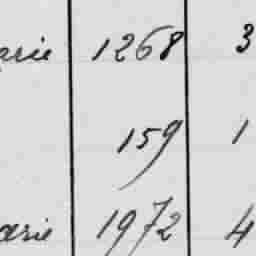 arie 1268 3
159 1
arie 1972 4